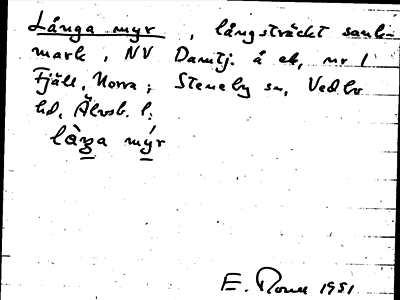 Långa myr, långsträckt sank-
mark, NV Damtj. å ek, nr 1
Fjäll, Norra; Steneby sn, Vedbo
hd, Älvsb. l.
låŋa mýr
E. 1951